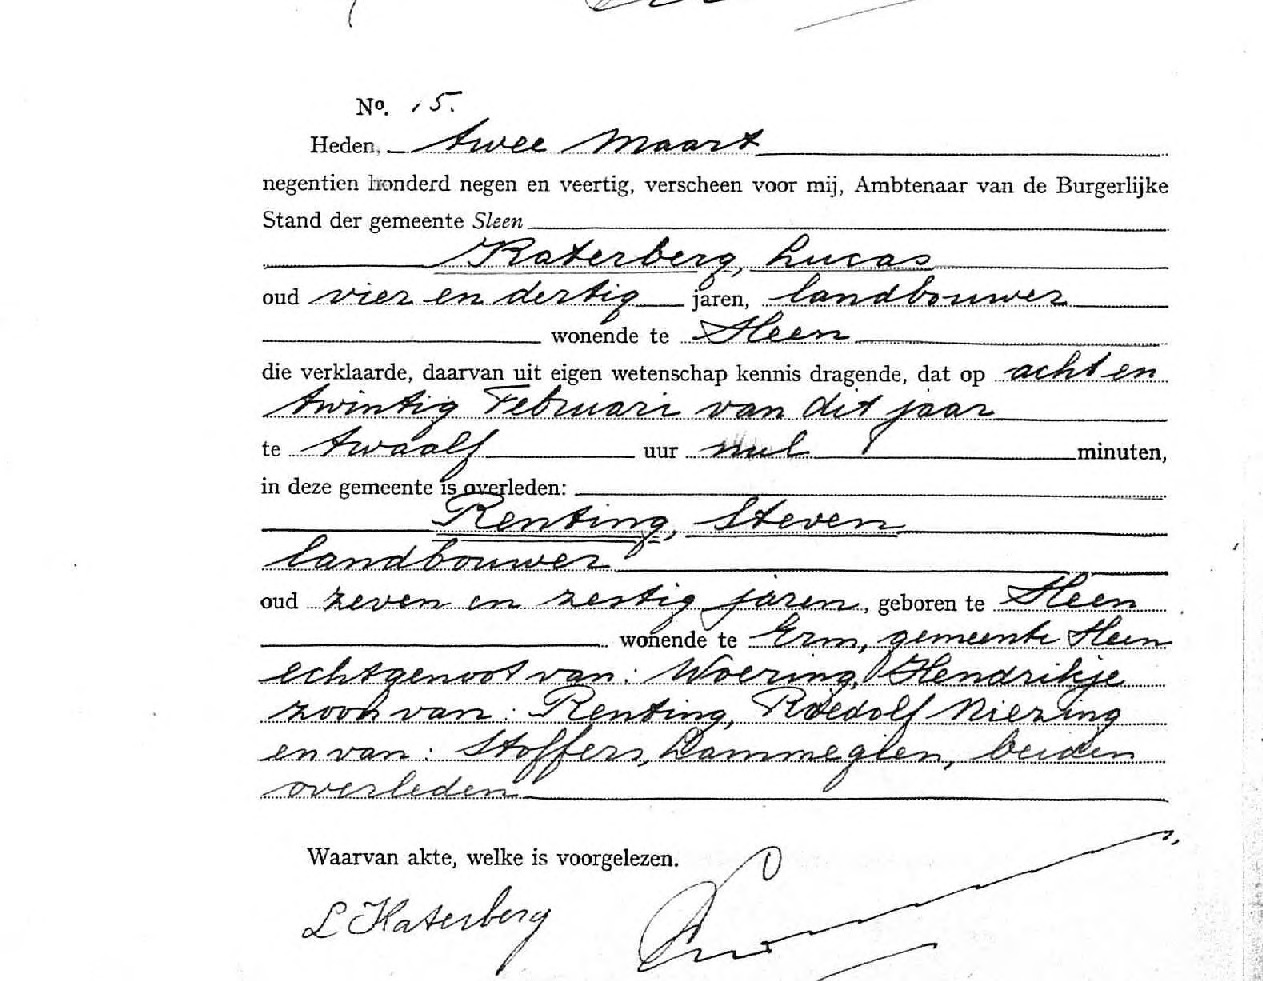 No. 15.
Heden, twee maart
negentien honderd negen en veertig, verscheen voor mij, Ambtenaar van de Burgerlijke
Stand der gemeente Sleen
Katerberg, Lucas
oud vier en dertig jaren, landbouwer
wonende te Sleen
die verklaarde, daarvan uit eigen wetenschap kennis dragende, dat op acht en
twintig Februari van dit jaar
te twaalf uur nul minuten,
in deze gemeente is overleden:
Renting, Steven
landbouwer
oud zeven en zestig jaren, geboren te Sleen
wonende te Erm, gemeente Sleen
echtgenoot van: Woering, Hendrikje
zoon van: Renting, Roedolf Niezing
en van: Stoffers, Lammegien, beiden
overleden
Waarvan akte, welke is voorgelezen.
L Katerberg